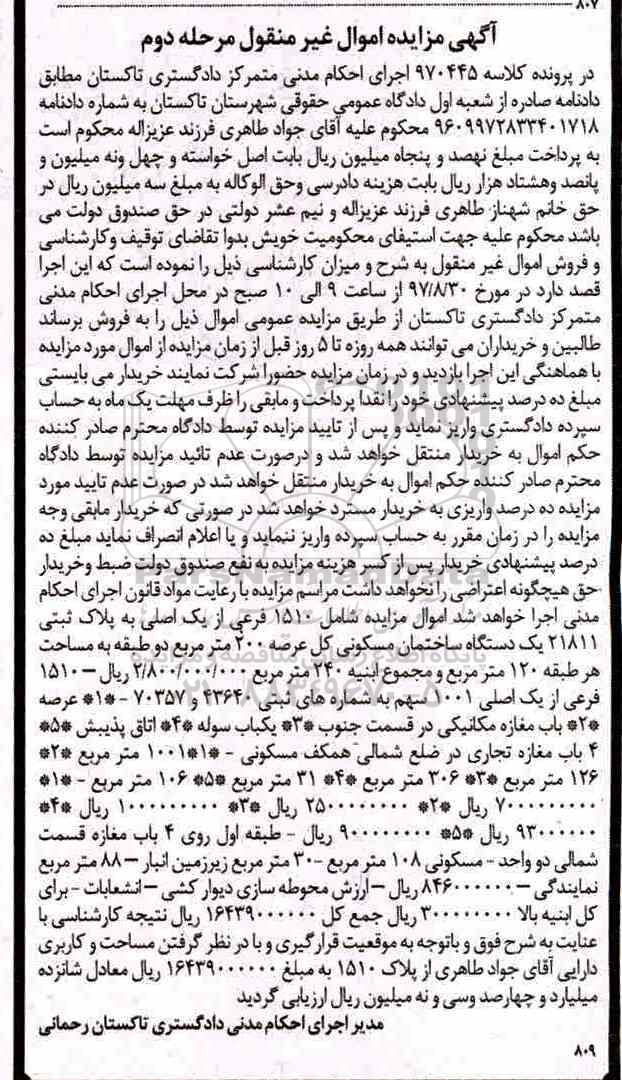 ۸۰۷
آگهی مزایده اموال غیر منقول مرحله دوم
در پرونده کلاسه ۹۷۰۴۴۵ اجرای احکام مدنی متمرکز دادگستری تاکستان مطابق
دادنامه صادره از شعبه اول دادگاه عمومی حقوقی شهرستان تاکستان به شماره دادنامه
۹۶۰۹۹۷۲۸۳۳۴۰۱۷۱۸ محکوم علیه آقای جواد طاهری فرزند عزیزاله محکوم است
به پرداخت مبلغ نهصد و پنجاه میلیون ریال بابت اصل خواسته و چهل ونه میلیون و
پانصد وهشتاد هزار ریال بابت هزینه دادرسی وحق الوکاله به مبلغ سه میلیون ریال در
حق خانم شهناز طاهری فرزند عزیزاله و نیم عشر دولتی در حق صندوق دولت می
باشد محکوم علیه جهت استیفای محکومیت خویش بدوا تقاضای توقیف وکارشناسی
و فروش اموال غیر منقول به شرح و میزان کارشناسی ذیل را نموده است که این اجرا
قصد دارد در مورخ ۹۷/۸/۳۰ از ساعت ۹ الی ۱۰ صبح در محل اجرای احکام مدنی
متمرکز دادگستری تاکستان از طریق مزایده عمومی اموال ذیل را به فروش برساند
طالبین و خریداران می توانند همه روزه تا ۵ روز قبل از زمان مزایده از اموال مورد مزایده
با هماهنگی این اجرا بازدید و در زمان مزایده حضورا شرکت نمایند خریدار می بایستی
مبلغ ده درصد پیشنهادی خود را نقدا پرداخت و مابقی را ظرف مهلت یک ماه به حساب
سپرده دادگستری واریز نماید و پس از تایید مزایده توسط دادگاه محترم صادر کننده
حکم اموال به خریدار منتقل خواهد شد و درصورت عدم تائید مزایده توسط دادگاه
محترم صادر کننده حکم اموال به خریدار منتقل خواهد شد در صورت عدم تایید مورد
مزایده ده درصد واریزی به خریدار مسترد خواهد شد در صورتی که خریدار مابقی وجه
مزایده را در زمان مقرر به حساب سپرده واریز ننماید و یا اعلام انصراف نماید مبلغ ده
درصد پیشنهادی خریدار پس از کسر هزینه مزایده به نفع صندوق دولت ضبط وخریدار
حق هیچگونه اعتراضی را نخواهد داشت مراسم مزایده با رعایت مواد قانون اجرای احکام
مدنی اجرا خواهد شد اموال مزایده شامل ۱۵۱۰ فرعی از یک اصلی به پلاک ثبتی
۲۱۸۱۱ یک دستگاه ساختمان مسکونی کل عرصه ۲۰۰ متر مربع دو طبقه به مساحت
هر طبقه ۱۲۰ متر مربع و مجموع ابنیه ۲۴۰ متر مربع ۲/۸۰۰/۰۰۰/۰۰۰ ریال – ۱۵۱۰
فرعی از یک اصلی ۱۰۰۱ سهم به شماره های ثبتی ۴۳۶۴۰ و ۷۰۳۵۷ - *۱* عرصه
*۲* باب مغازه مکانیکی در قسمت جنوب *۳* یکباب سوله *۴* اتاق پذیبش *۵*
۴ باب مغازه تجاری در ضلع شمالی همکف مسکونی - *۱* ۱۰۰۱ متر مربع *۲*
۱۲۶ متر مربع *۳* ۳۰۶ متر مربع *۴* ۳۱ متر مربع *۵* ۱۰۶ متر مربع - *۱*
۷۰۰۰۰۰۰۰۰۰ ریال *۲* ۲۵۰۰۰۰۰۰۰۰ ریال *۳* ۱۰۰۰۰۰۰۰۰۰ ریال *۴*
۹۳۰۰۰۰۰۰ ریال *۵* ۹۰۰۰۰۰۰۰۰ ریال - طبقه اول روی ۴ باب مغازه قسمت
شمالی دو واحد - مسکونی ۱۰۸ متر مربع -۳۰ متر مربع زیرزمین انبار – ۸۸ متر مربع
نمایندگی – ۸۴۶۰۰۰۰۰۰ ریال – ارزش محوطه سازی دیوار کشی – انشعابات - برای
کل ابنیه بالا ۳۰۰۰۰۰۰۰۰ ریال جمع کل ۱۶۴۳۹۰۰۰۰۰۰ ریال نتیجه کارشناسی با
عنایت به شرح فوق و باتوجه به موقعیت قرار گیری و با در نظر گرفتن مساحت و کاربری
دارایی آقای جواد طاهری از پلاک ۱۵۱۰ به مبلغ ۱۶۴۳۹۰۰۰۰۰۰ ریال معادل شانزده
میلیارد و چهارصد وسی و نه میلیون ریال ارزیابی گردید
مدیر اجرای احکام مدنی دادگستری تاکستان رحمانی
۸۰۹
ParsNamadData
پایگاه اطلاع رسانی مناقصه و مزایده
۰۲۱-۸۸۳۴۹۶۷۰-۵